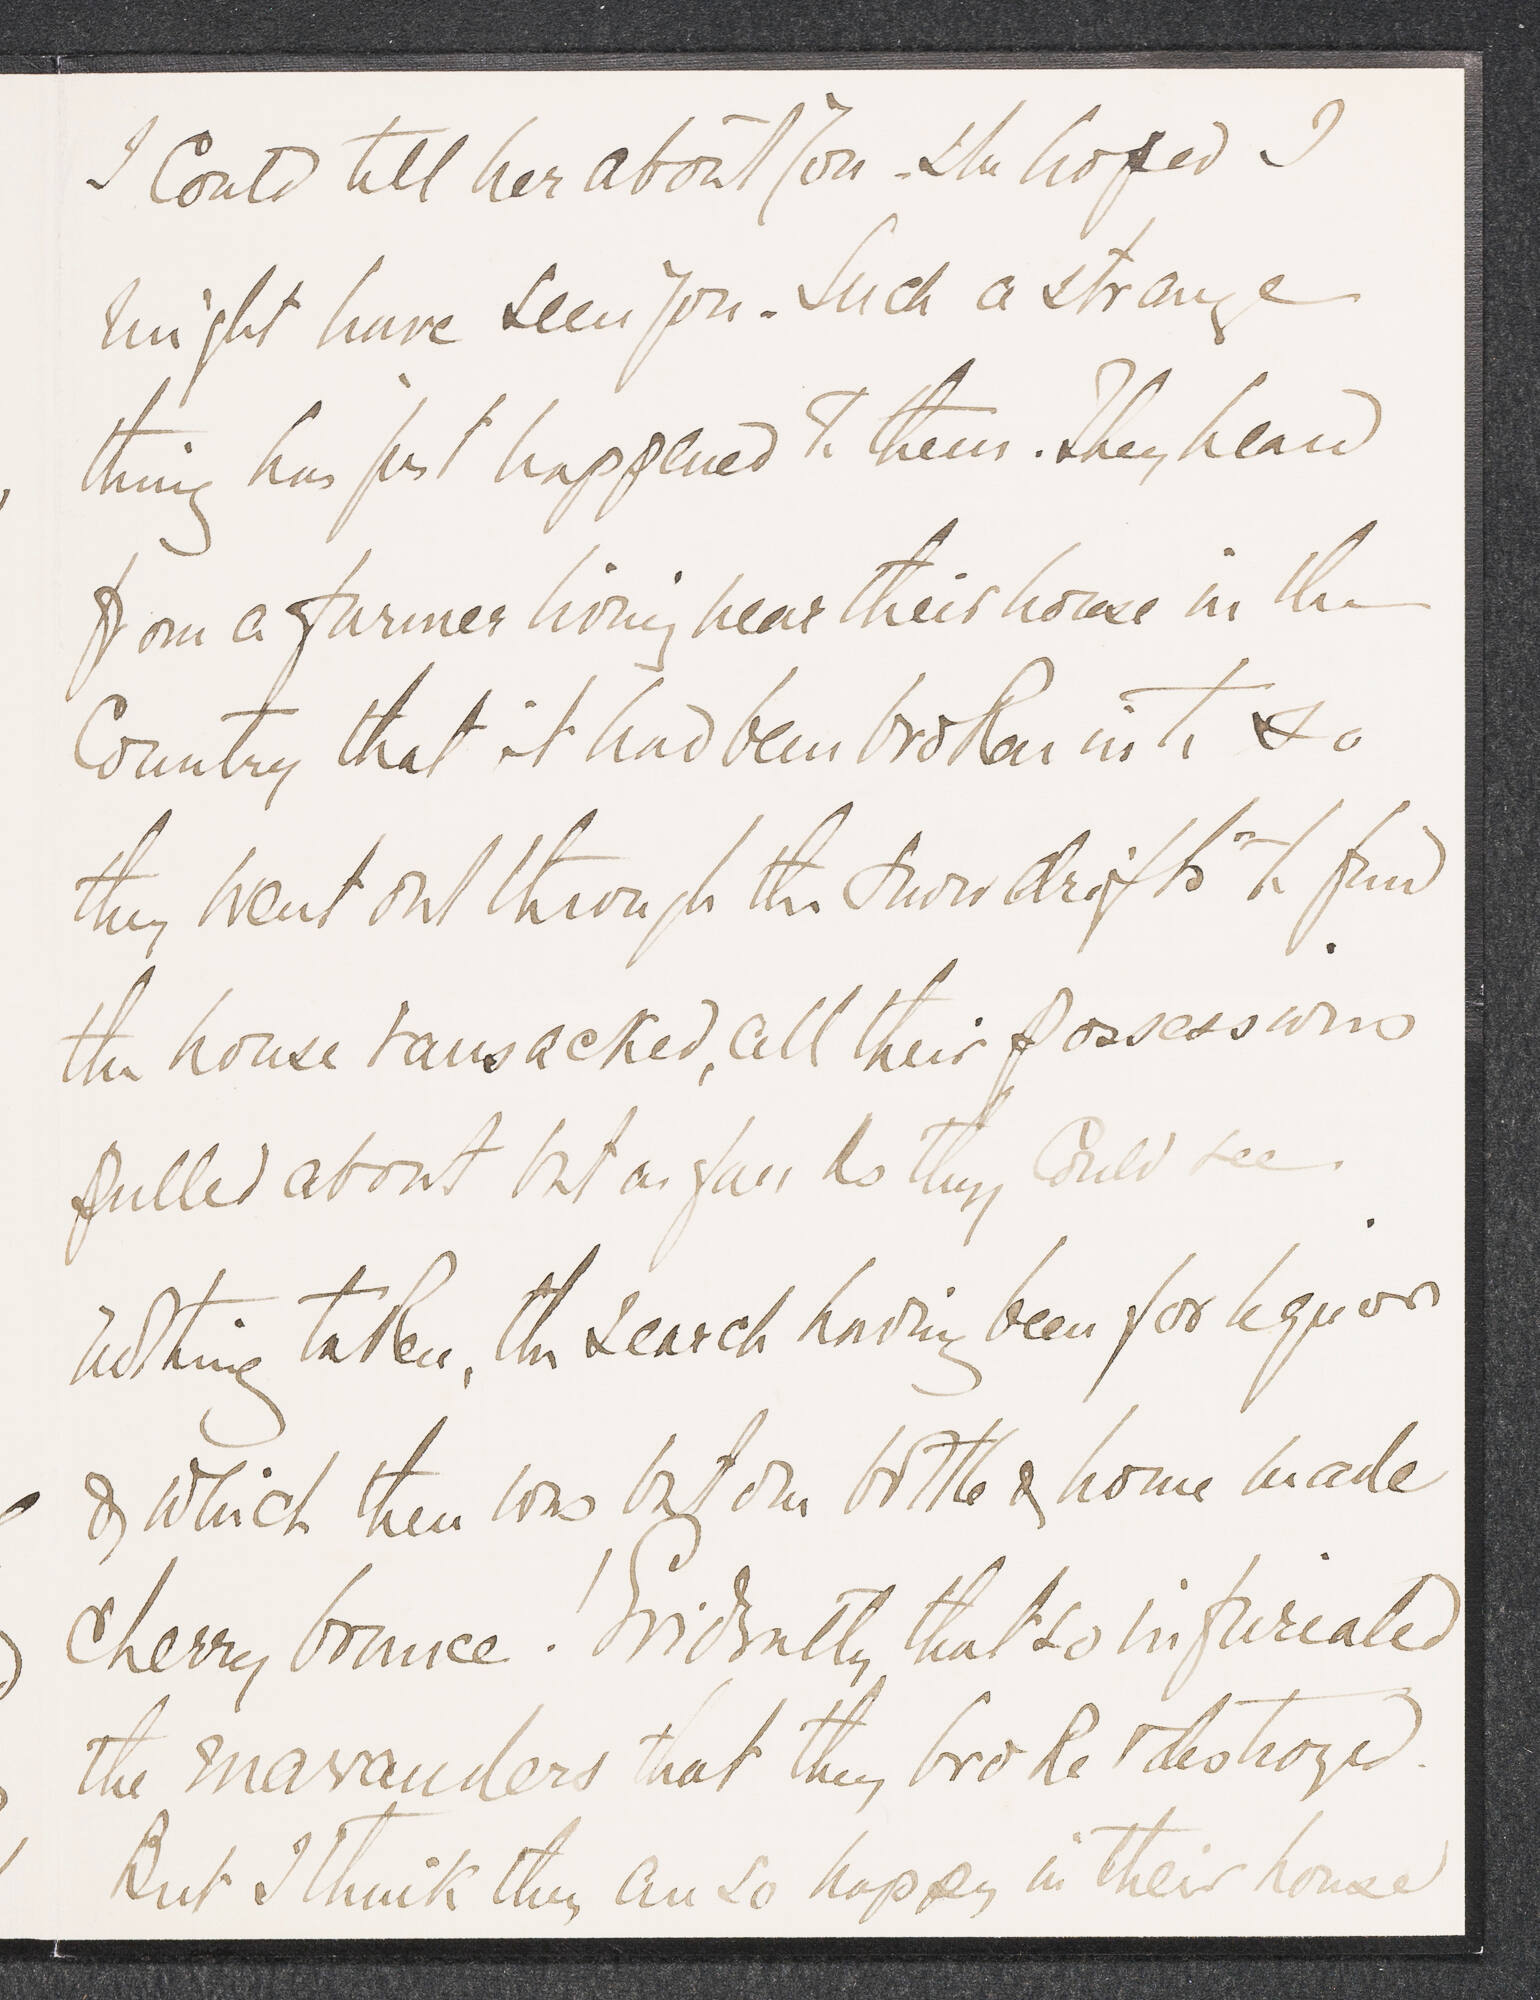 I Could tell her about you - she hoped I
might have seen you - Such a strange
thing has just happened to them. They heard
from a farmer living near their house in the
Country that it had been broken into so
they went out through the snow drifts to find
the house ransacked, all their possessions
pulled about but as far as they could see
nothing taken, the search having been for liquor
of which there was but one bottle of home made
cherry bounce! Evidently that so infuriated
the marauders that they broke & destroyed.
But I think they are so happy in their house